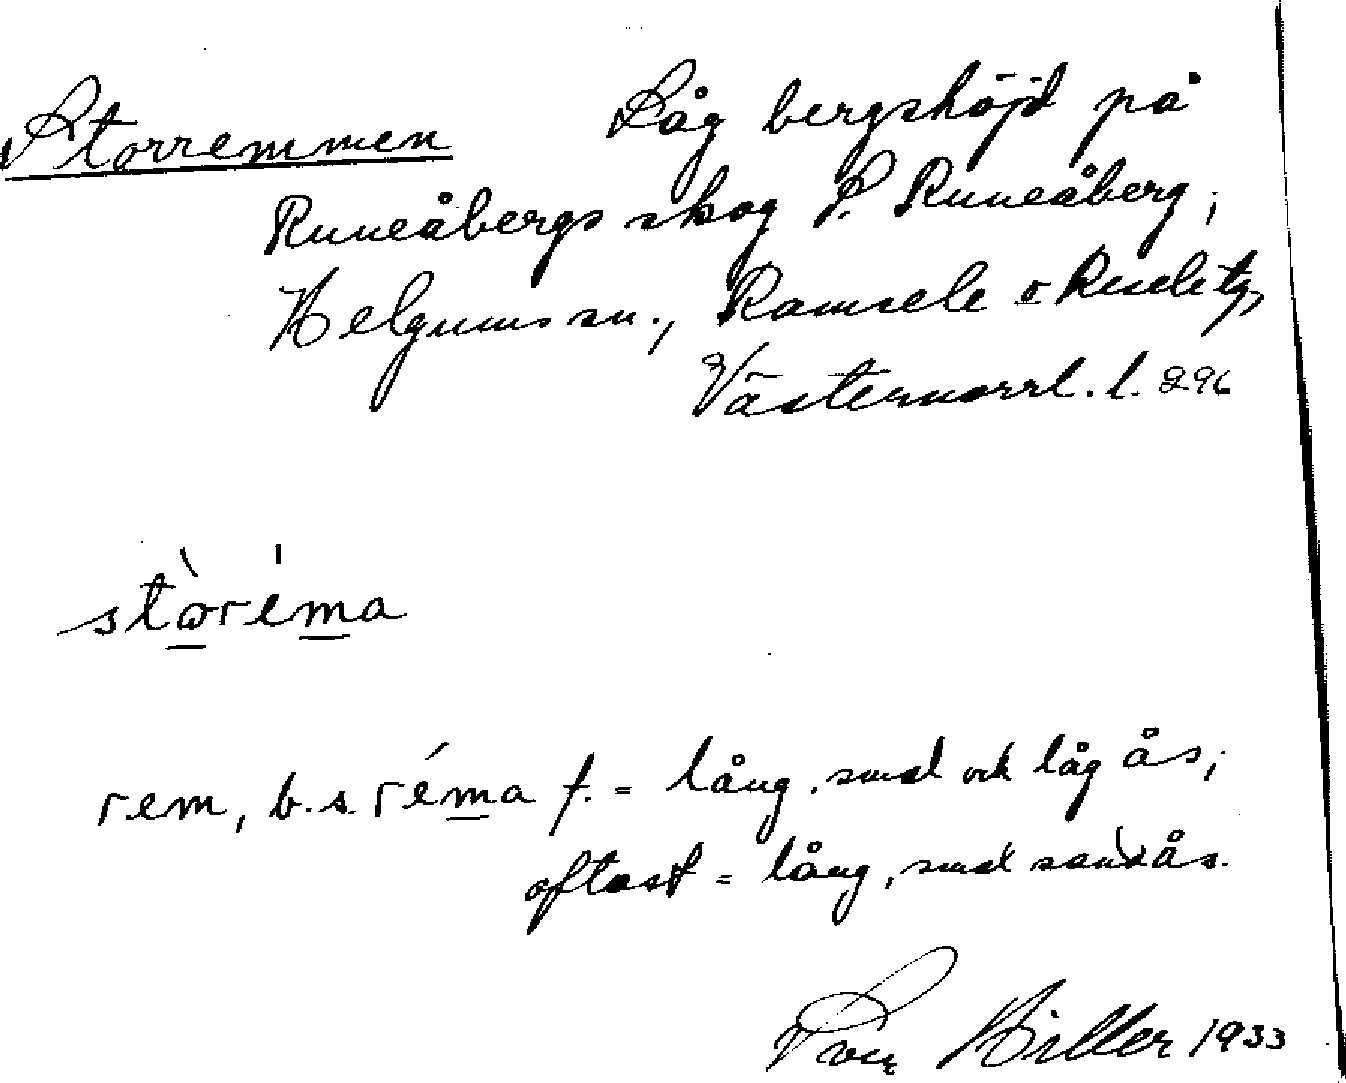 Storremmen Låg bergshöjd på
Runeåbergs skog S. Runeåberg;
Helgums sn., Ramsele o Resele tg,
Västernorrl. l. 296
stòréma
rem, b.s. réma f. = lång, smal och låg ås;
oftast = lång, smal sandås.
Hiller 1933